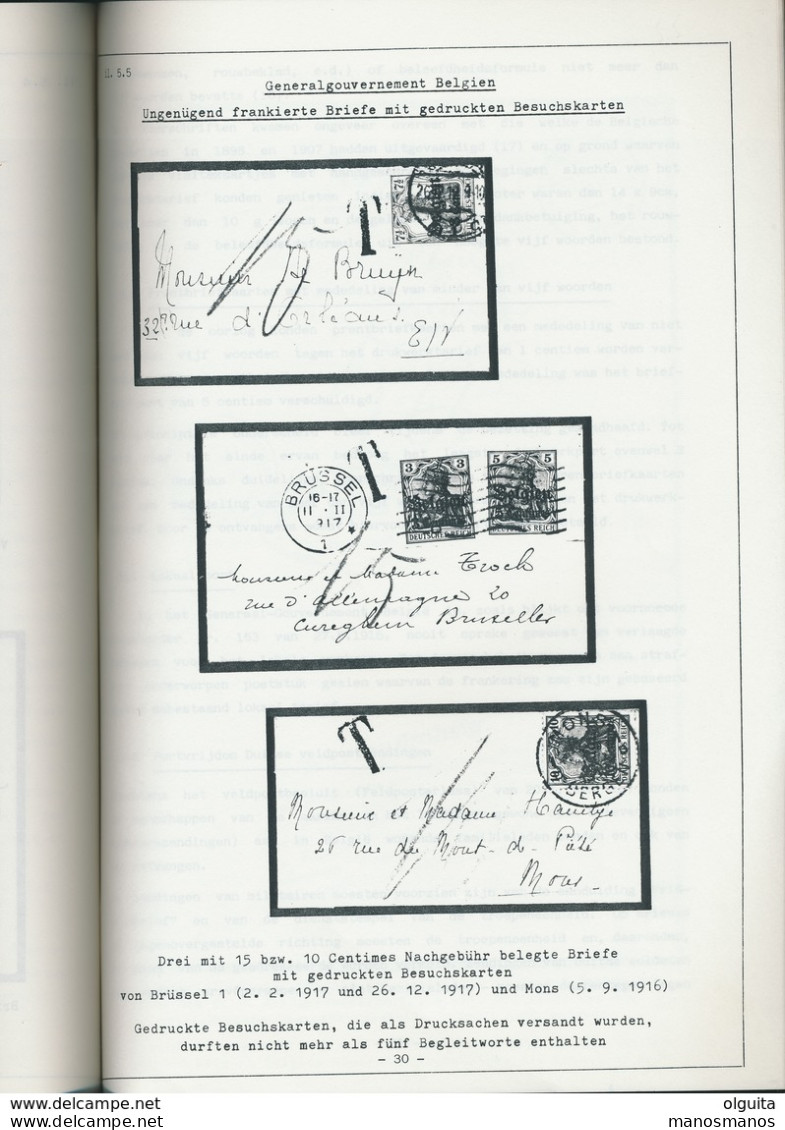 5.5
Generalgouvernement Belgien
Ungenügend frankierte Briefe mit gedruckten Besuchskarten
T
7½
15
Monsieur De Bruyn
32 rue d'Orléans
E/V
T
BRÜSSEL
16-17
II . II
917
1 *
3 3
Belgien
DEUTSCHES REICH
5 5
Belgien
DEUTSCHES REICH
15
Monsieur et Madame Troch
rue d'Allemagne 20
Cureghem Bruxelles
T
MONS
BERGEN
10
Monsieur et Madame
26 rue du Mont-de-Piété
Mons
Drei mit 15 bzw. 10 Centimes Nachgebühr belegte Briefe
mit gedruckten Besuchskarten
von Brüssel 1 (2. 2. 1917 und 26. 12. 1917) und Mons (5. 9. 1916)
Gedruckte Besuchskarten, die als Drucksachen versandt wurden,
durften nicht mehr als fünf Begleitworte enthalten
- 30 -
www.delcampe.net
olguita
www.delcampe.net
manosmanos